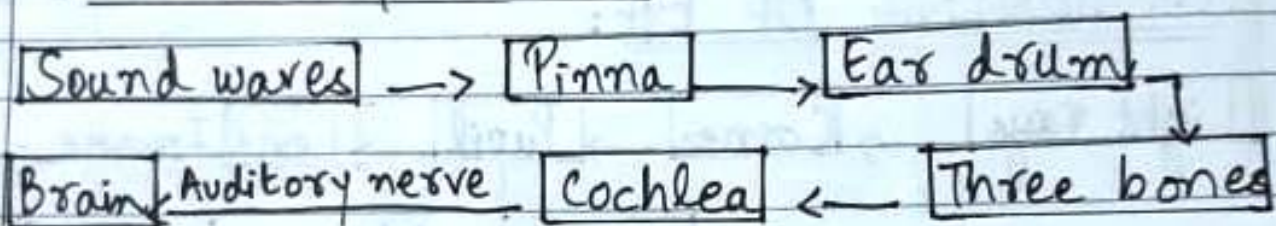 Sound waves → Pinna → Ear drum
Brain ← Auditory nerve Cochlea ← Three bones